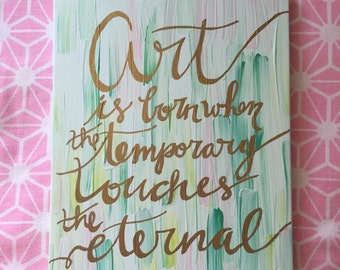 Art
is born when
the temporary
touches
the eternal